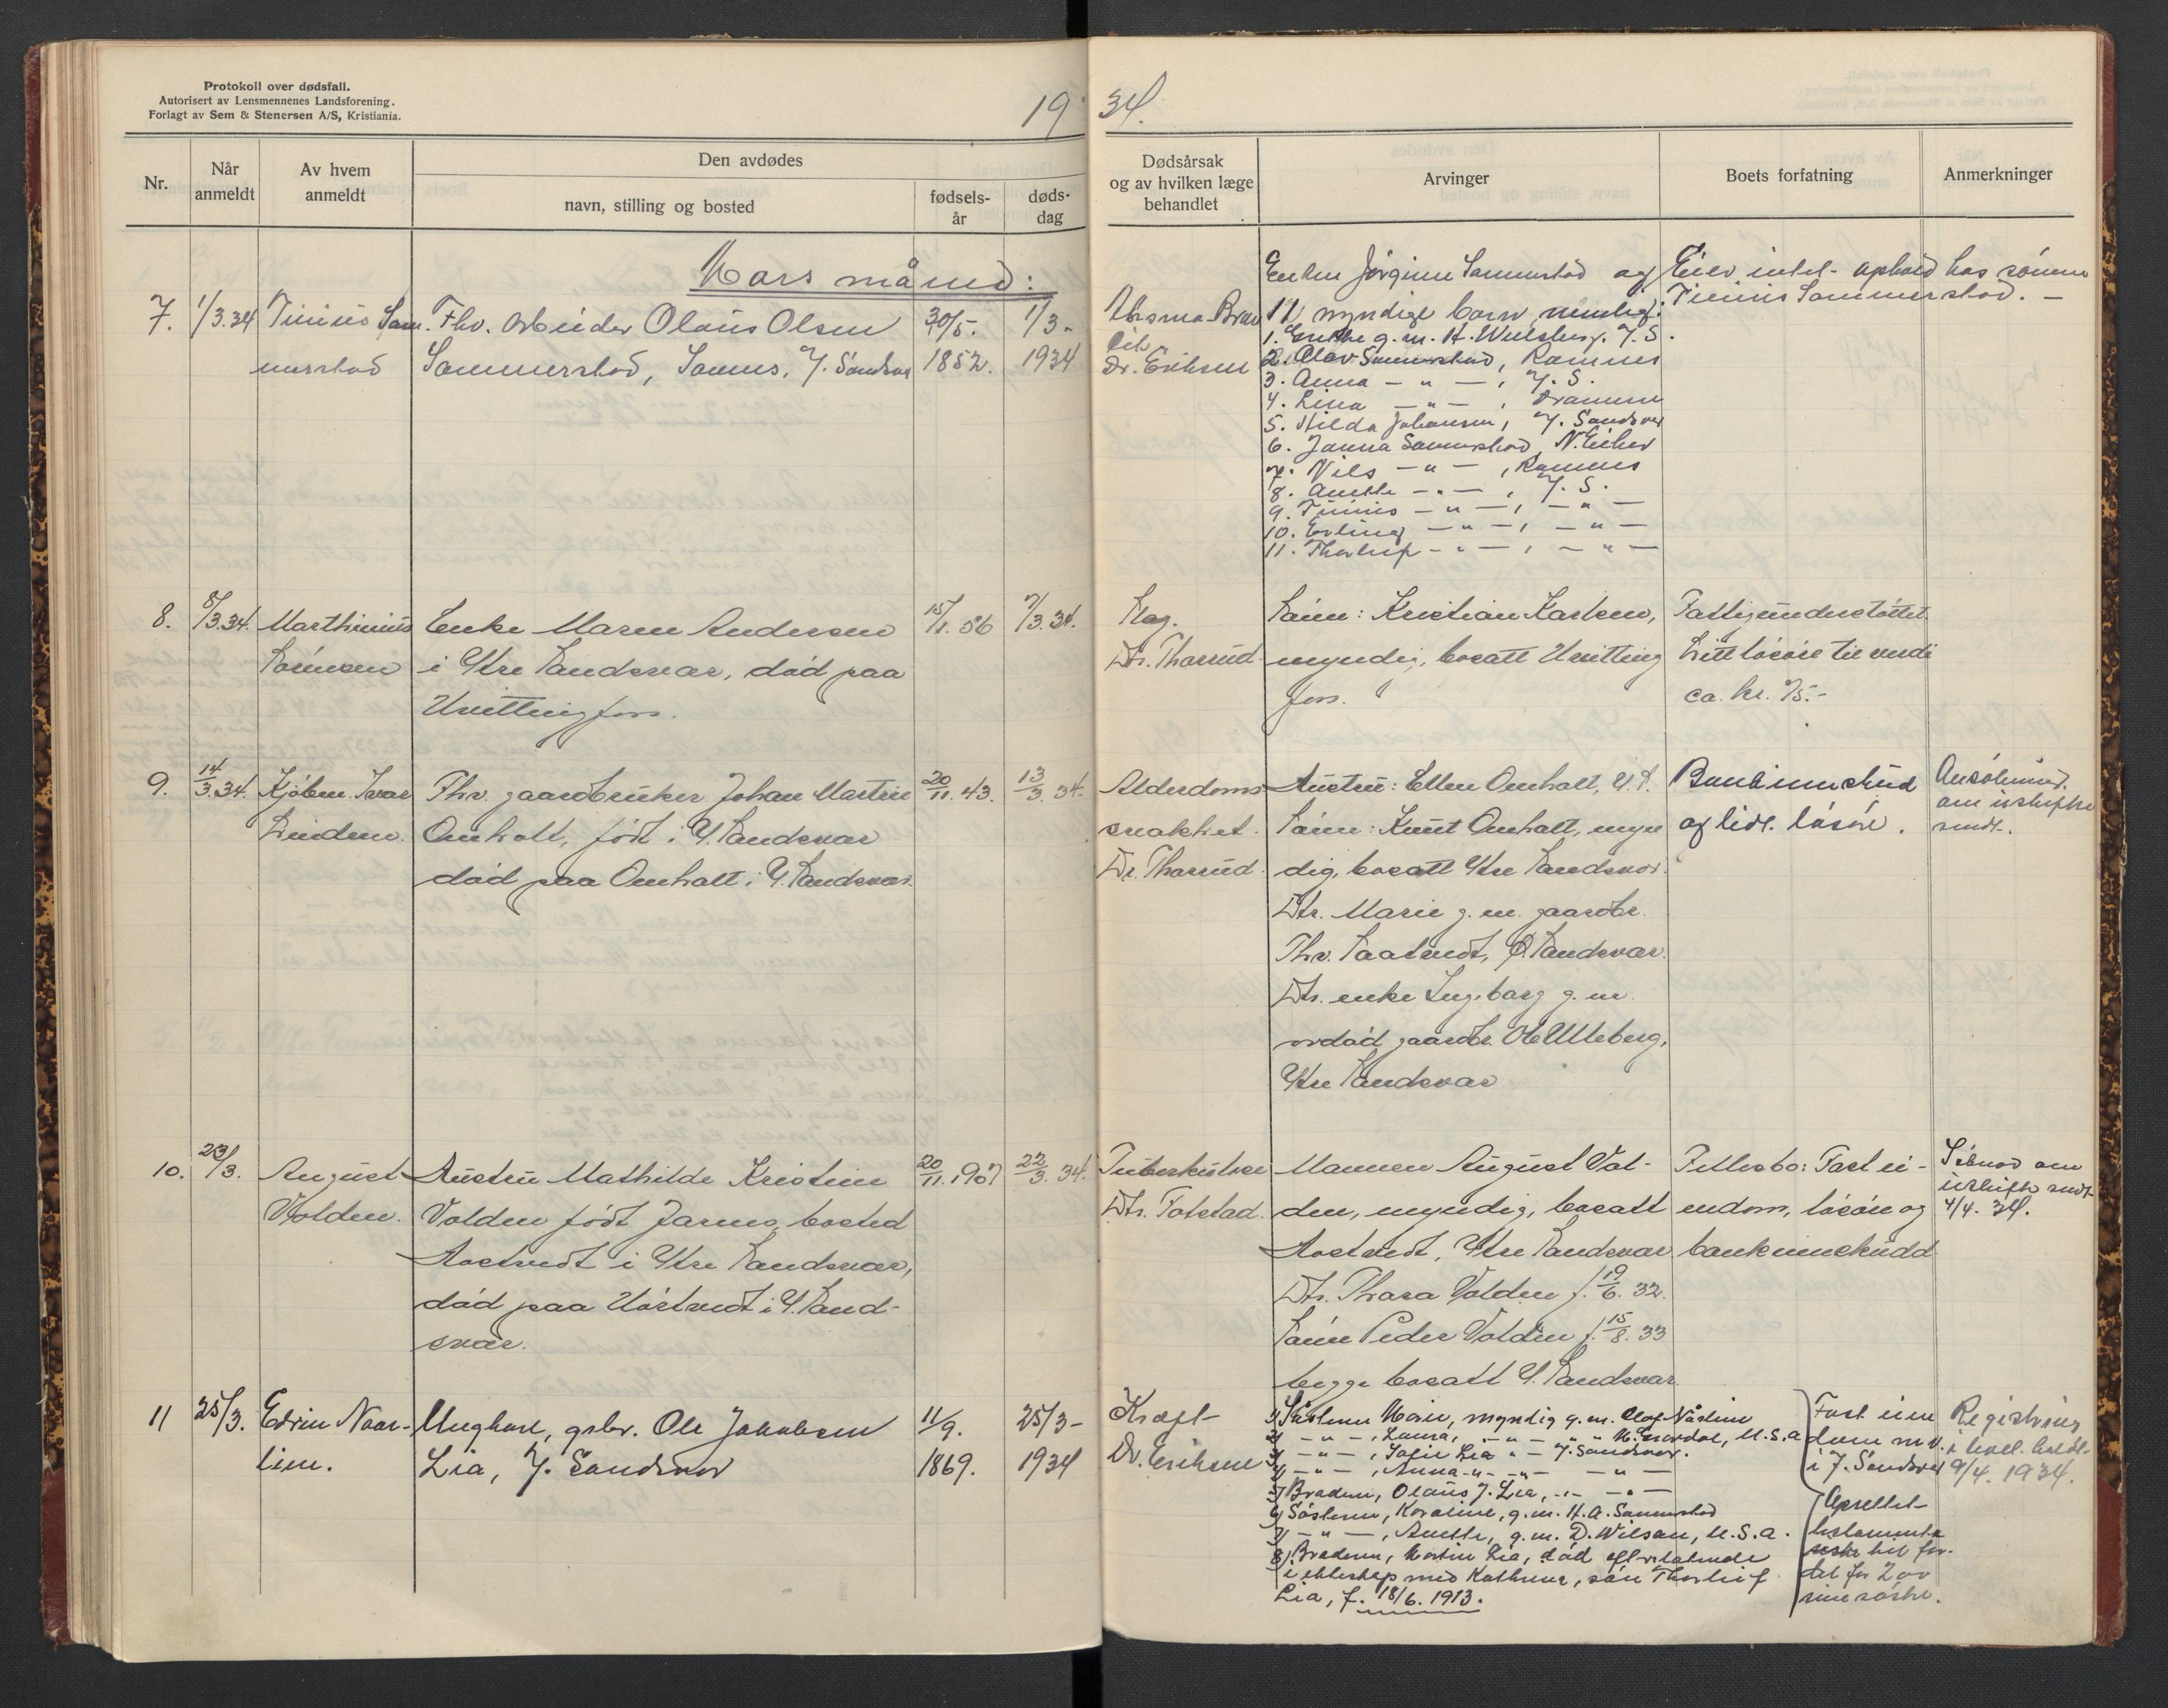 Protokoll over dødsfall.
Autorisert av Lensmennenes Landsforening.
Forlagt av Sem & Stenersen A/S, Kristiania.
19 34.
Nr.
Når anmeldt
Av hvem anmeldt
Den avdødes
navn, stilling og bosted
fødsels-år
døds-dag
Dødsårsak og av hvilken læge behandlet
Arvinger
Boets forfatning
Anmerkninger
Mars måned:
7. 1/3.34 Tinius Sam-
merstad
Fhv. arbeider Olaus Olsen
Sammerstad, Samms, Y. Sandsv
30/5. 1852.
1/3- 1934
Dr. Eriksen
Enken Jørgine Sammerstad og
11 myndige barn nemlig:
1. Grethe g.m. H. Wulsberg. Y.S.
2. Olav Sammerstad, Ramnes
3. Anna — " — , Y.S.
4. Lina — " — , Drammen
5. Hilda Johansen, Y. Sandsver
6. Janna Sammerstad N. Eiker
7. Nils — " — , Ramnes
8. Anette — " — , Y.S.
9. Tinius — " — , — " —
10. Erling — " — , — " —
11. Thorleif — " — , — " —
Eiev intet - ophold hos sønnen
Tinius Sammerstad. —
8. 8/3.34. Marthinius
Sørensen
Enke Maren Andersen
i Ytre Sandsvær, død paa
Hvittingfoss.
15/1. 56
7/3. 34.
Slag.
Dr. Tharrud
Sønn: Kristian Karlsen,
myndig, bosatt Hvitting
foss.
Fattigunderstøttet.
Litt løsøre til verdi
ca. kr. 75.-
9. 14/3.34. Kjøbm. Ivar
Lindem.
Fhv. gaardbruker Johan Martin
Omholt, født i Y. Sandsvær
død paa Omholt i Y. Sandsvær.
20/11. 43.
13/3. 34.
Alderdoms-
svakhet.
Dr. Tharrud.
Hustru: Ellen Omholt, Y.S.
Sønn: Knut Omholt, myn
dig, bosatt Ytre Sandsvær.
Dtr. Marie g.m. gaardbr.
Thv. Saatvedt, Ø. Sandsvær.
Dtr. enke Ingeborg g.m.
avdød gaardbr. Ole Ulleberg,
Ytre Sandsvær
Bankinnskud
og lidt løsøre.
Ansøkning
om uskifte
sendt.
10. 23/3. August
Volden.
Hustru Mathilde Kristine
Volden født Jarnes, bosted
Aastvedt i Ytre Sandsvær,
død paa Hørtvedt i Y. Sand-
svær.
20/11. 1907
22/3. 34.
Tuberkulose
Dr. Totstad.
Mannen August Vol-
den, myndig, bosatt
Aastvedt, Ytre Sandsvær
Dtr. Thora Volden f. 19/6. 32.
Sønn Peder Volden f. 15/8. 33
begge bosatt Y. Sandsvær.
Fellesbo: Fast ei-
endom, løsøre og
bankinnskudd
Søknad om
uskifte sendt
4/4. 34.
11 25/3. Edvin Naar-
lien.
Ungkarl, grbr. Ole Jakobsen
Lia, Y. Sandsver
11/9. 1869.
25/3- 1934
Kræft-
Dr. Eriksen
1) Søsteren Marie, myndig g.m. Olaf Nårlien
2) — " — , Laura, — " — " — N. Enerdal, U.S.A
3) — " — , Sofie Lia " — Y. Sandsver.
4) — " — , Anna — " — " — — " —
5) Broderen, Olaus J. Lia, — " — — " —
6) Søsteren, Karoline, g.m. H.A. Sammerstad
7) — " — , Anette, g.m. D. Wilson, U.S.A.
8) Broderen, Martin Lia, død efterlatende
i ekteskap med Kathrine, søn Thorleif
Lia, f. 18/6. 1913.
Fast eien
dom m.v.
i Y. Sandsver
Oprettet
testamente
til for-
del for 2 av
sine søstre.
Registrering
i boet holdt
9/4. 1934.